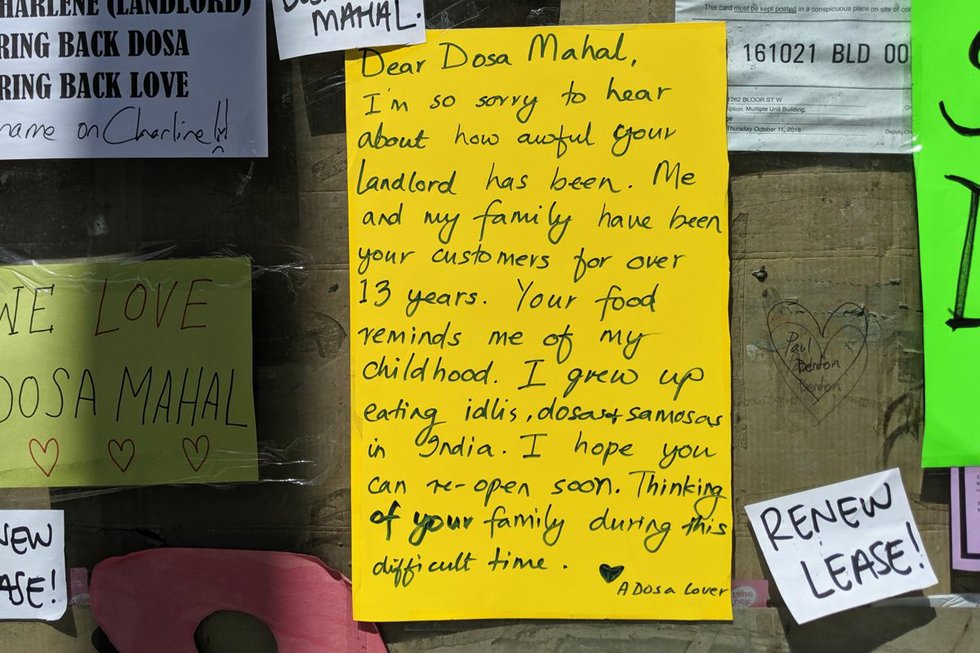 CHARLENE (LANDLORD)
RING BACK DOSA
RING BACK LOVE
name on Charline!!
MAHAL.
Dear Dosa Mahal,
I'm so sorry to hear
about how awful your
landlord has been. Me
and my family have been
your customers for over
13 years. Your food
reminds me of my
childhood. I grew up
eating idlis, dosas + samosas
in India. I hope you
can re-open soon. Thinking
of your family during this
difficult time. ♥
A Dosa Lover
This card must be kept posted in a conspicuous place on site of
161021 BLD 00
1262 BLOOR ST W
Multiple Unit Building,
Thursday October 11, 2018
WE LOVE
DOSA MAHAL
Paul
Denton
RENEW
LEASE!
NEW
ASE!